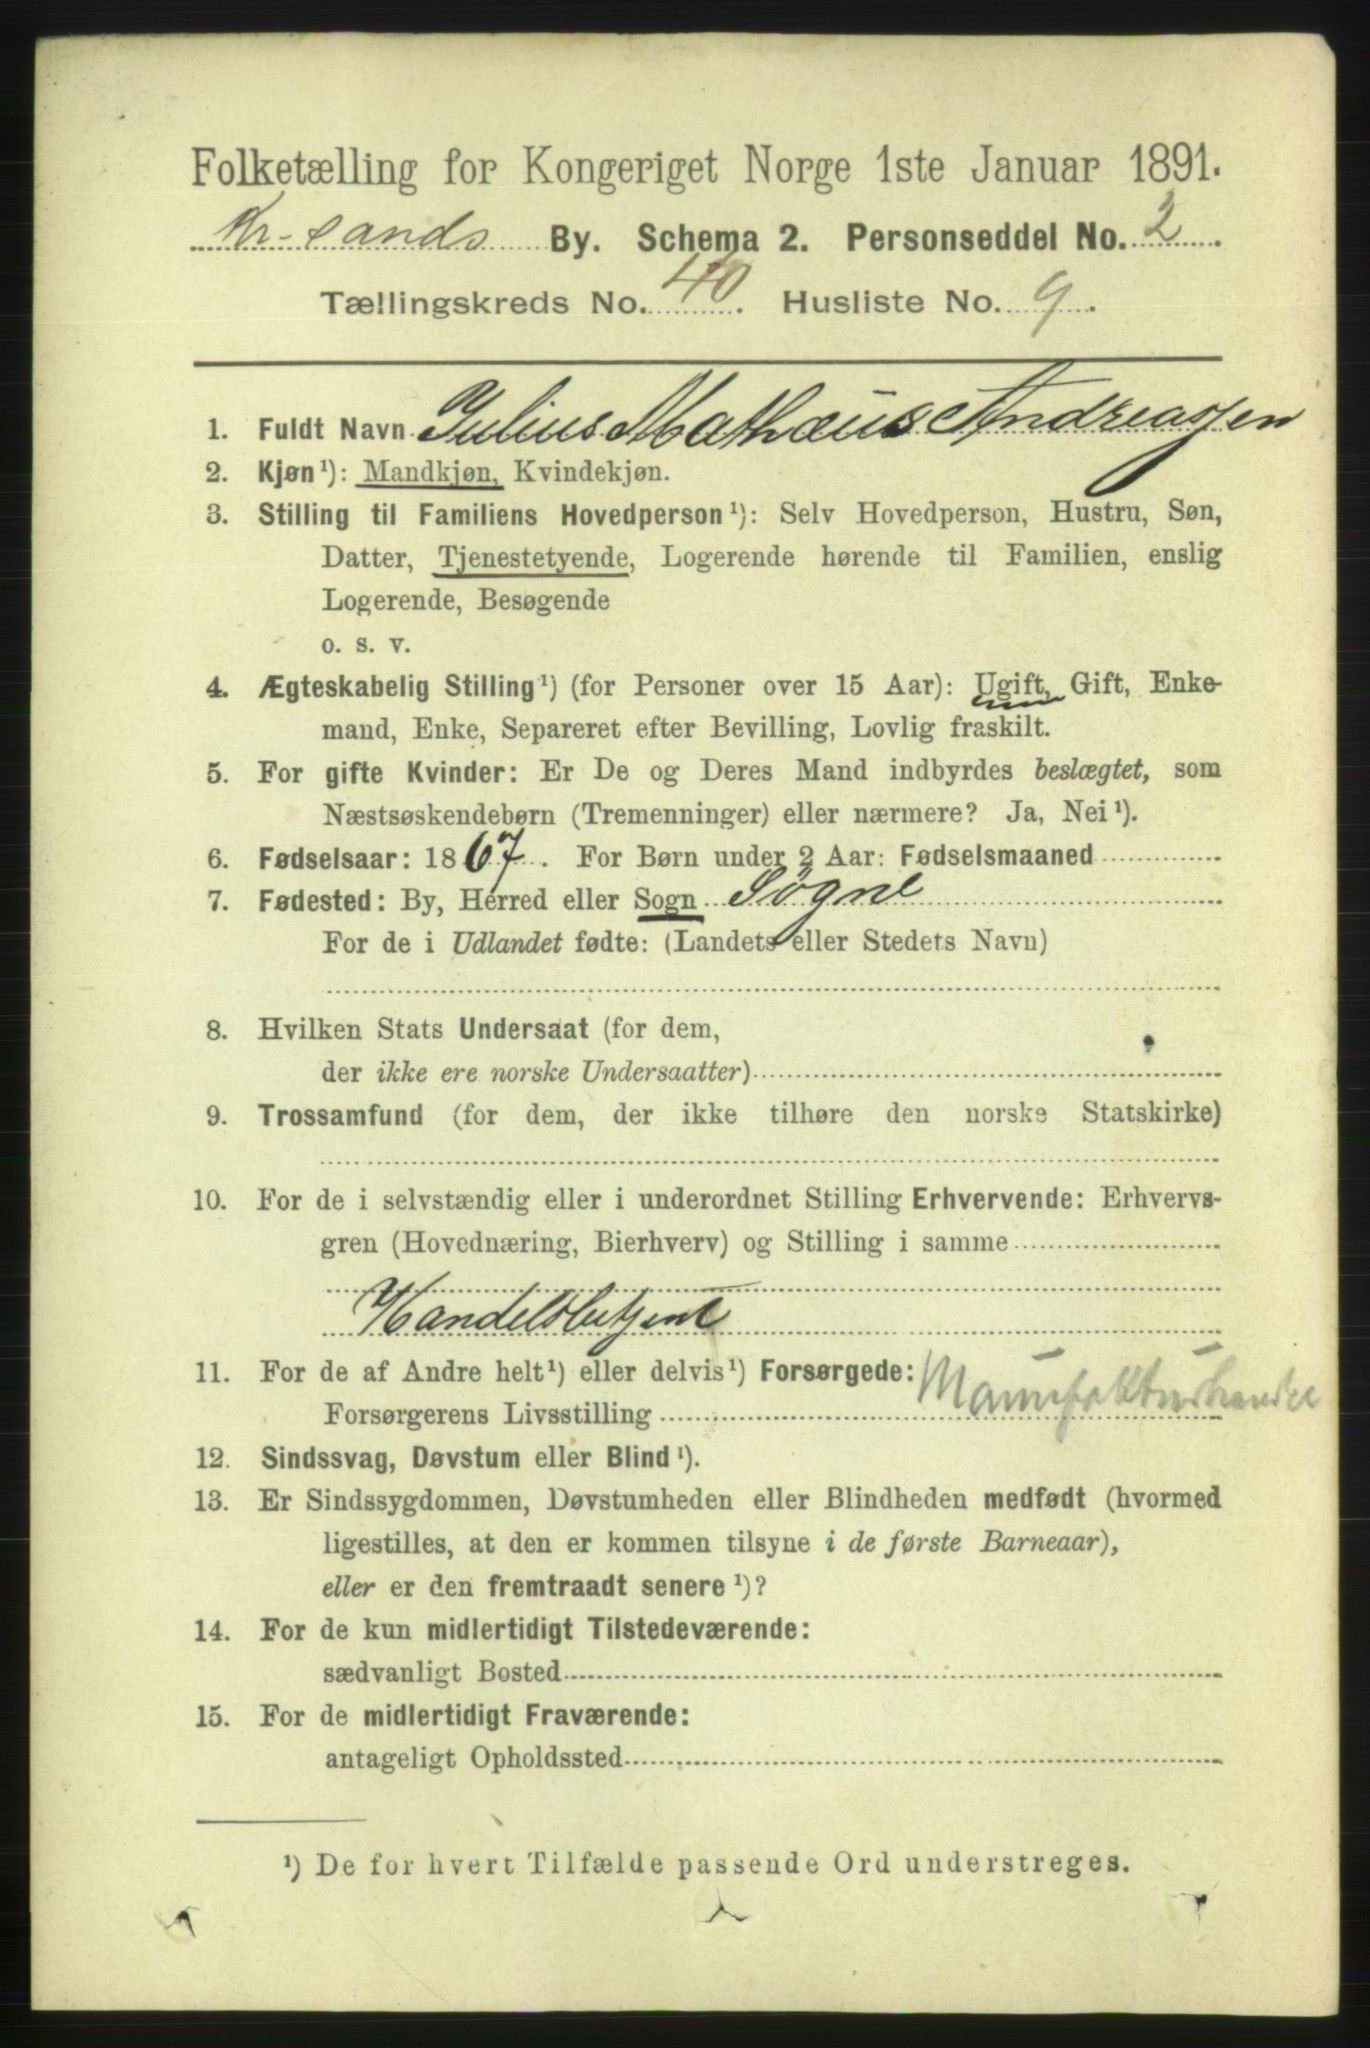 Folketælling for Kongeriget Norge 1ste Januar 1891.
Kr-sands By. Schema 2. Personseddel No. 2.
Tællingskreds No. 40. Husliste No. 9.
1. Fuldt Navn Julius Mathæus Andreassen
2. Kjøn¹): Mandkjøn, Kvindekjøn.
3. Stilling til Familiens Hovedperson¹): Selv Hovedperson, Hustru, Søn,
Datter, Tjenestetyende, Logerende hørende til Familien, enslig
Logerende, Besøgende
o. s. v.
4. Ægteskabelig Stilling¹) (for Personer over 15 Aar): Ugift, Gift, Enke-
mand, Enke, Separeret efter Bevilling, Lovlig fraskilt.
5. For gifte Kvinder: Er De og Deres Mand indbyrdes beslægtet, som
Næstsøskendebørn (Tremenninger) eller nærmere? Ja, Nei¹).
6. Fødselsaar: 1867. For Børn under 2 Aar: Fødselsmaaned
7. Fødested: By, Herred eller Sogn Søgne
For de i Udlandet fødte: (Landets eller Stedets Navn)
8. Hvilken Stats Undersaat (for dem,
der ikke ere norske Undersaatter)
9. Trossamfund (for dem, der ikke tilhøre den norske Statskirke)
10. For de i selvstændig eller i underordnet Stilling Erhvervende: Erhvervs-
gren (Hovednæring, Bierhverv) og Stilling i samme
Handelsbetjent
11. For de af Andre helt¹) eller delvis¹) Forsørgede: Manufakturhandel
Forsørgerens Livsstilling
12. Sindssvag, Døvstum eller Blind¹).
13. Er Sindssygdommen, Døvstumheden eller Blindheden medfødt (hvormed
ligestilles, at den er kommen tilsyne i de første Barneaar),
eller er den fremtraadt senere¹)?
14. For de kun midlertidigt Tilstedeværende:
sædvanligt Bosted
15. For de midlertidigt Fraværende:
antageligt Opholdssted
¹) De for hvert Tilfælde passende Ord understreges.